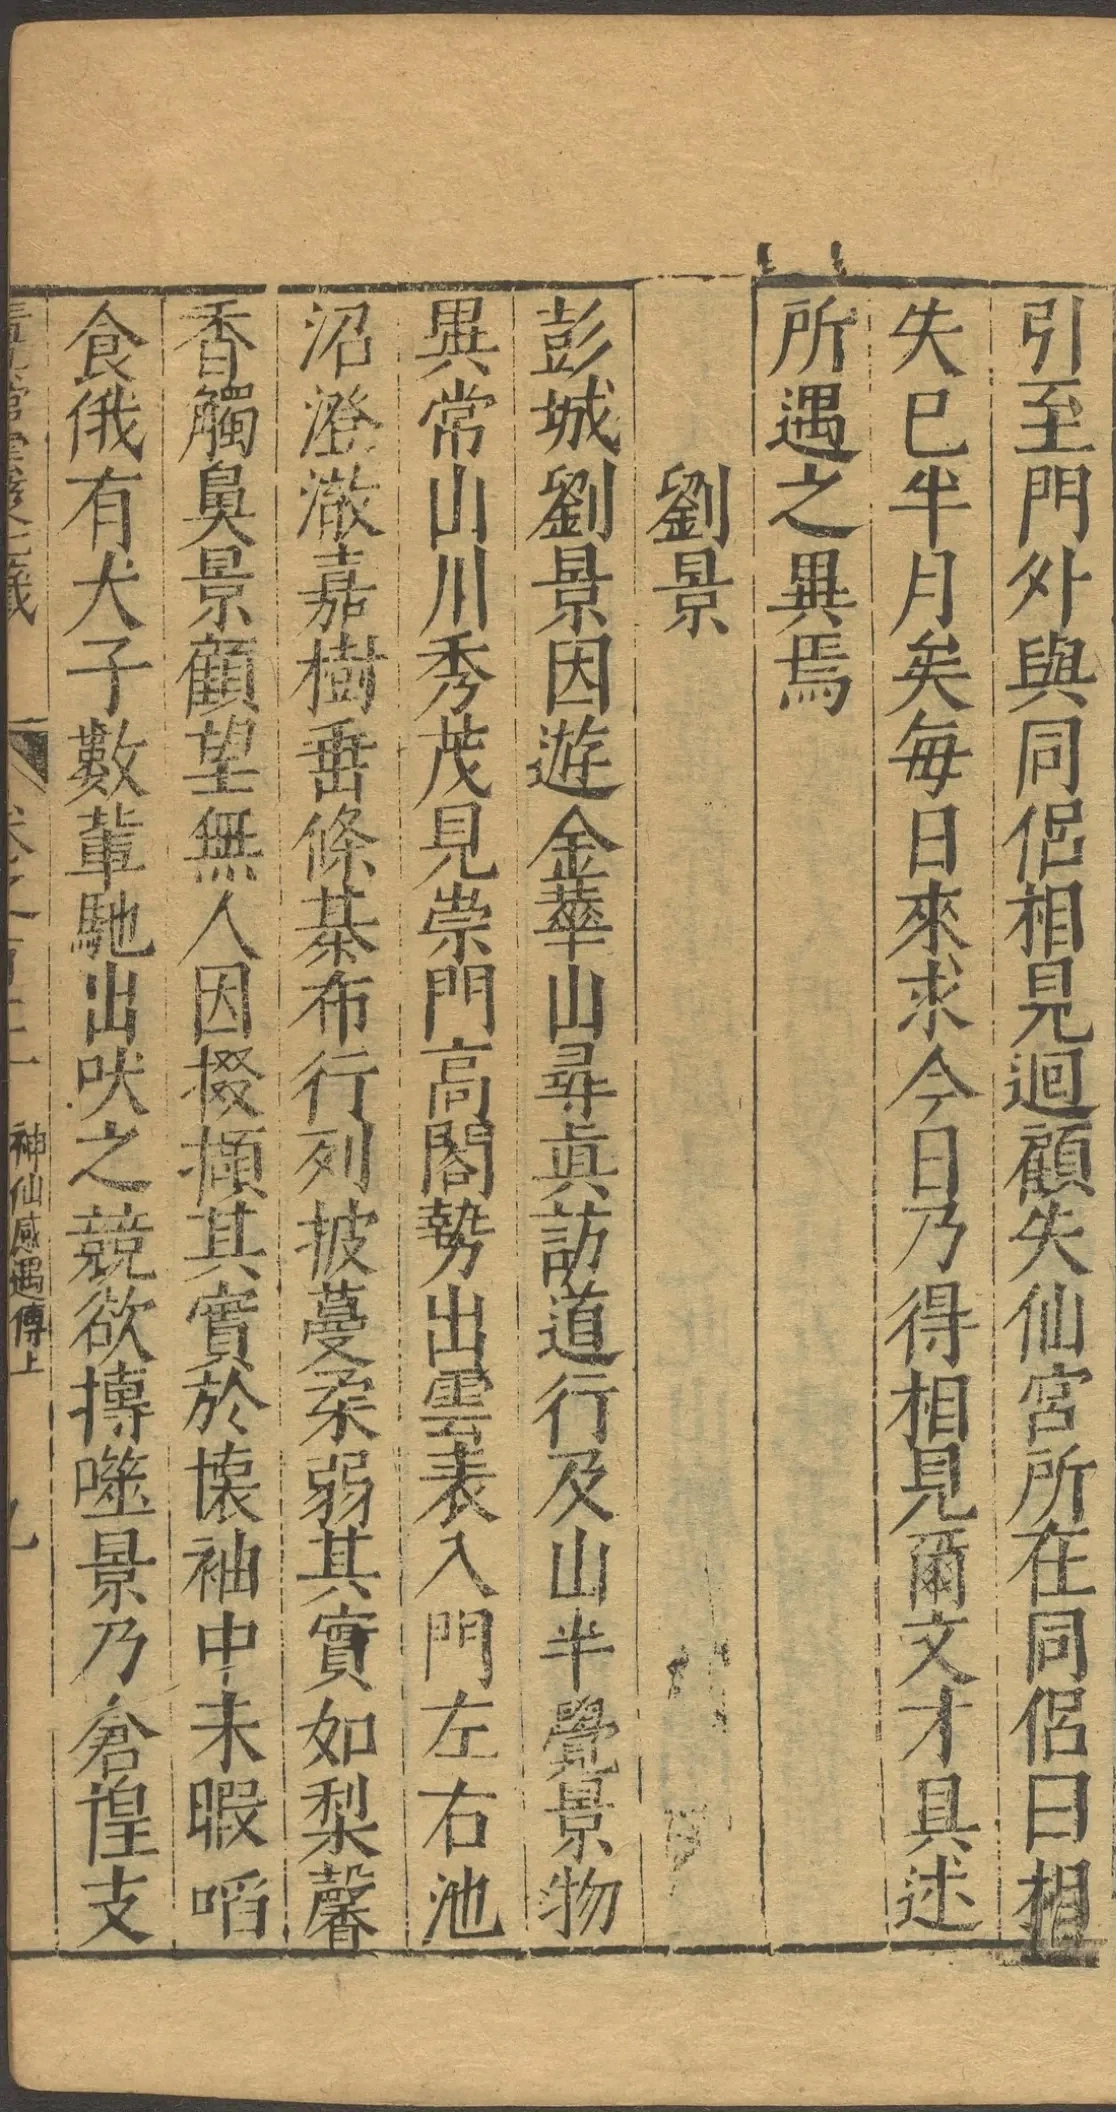 引至門外與同侶相見迴顧失仙宮所在同侶曰相
失巳半月矣每日來求今日乃得相見爾文才具述
所遇之異焉
劉景
彭城劉景因遊金華山尋真訪道行及山半覺景物
異常山川秀茂見崇門高閣勢出雲表入門左右池
沼澄澈嘉樹垂條棊布行列披蔓柔弱其實如梨馨
香觸鼻景顧望無人因掇擷其實於懷袖中未暇啗
食俄有犬子數輩馳出吠之競欲搏噬景乃倉惶支
神仙感遇傳上